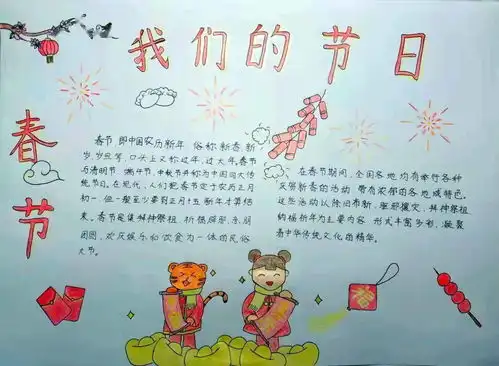 我们的节日
春节
春节 即中国农历新年 俗称新春,新
岁,岁旦等,口头上又称过年,过大年.春节
与清明节 端午节,中秋节并称为中国四大传
统节日.在现代,人们把春节定于农历正月
初一.但一般至少要到正月十五 新年才算结
束。春节是集拜神祭祖,祈福辟邪,亲朋
团圆,欢庆娱乐和饮食为一体的民俗
大节。
在春节期间,全国各地均有举行各种
庆贺新春的活动 带有浓郁的各地域特色.
这些活动以除旧布新,驱邪攘灾,拜神祭祖
纳福祈年为主要内容,形式丰富多彩,凝聚
着中华传统文化的精华。
春